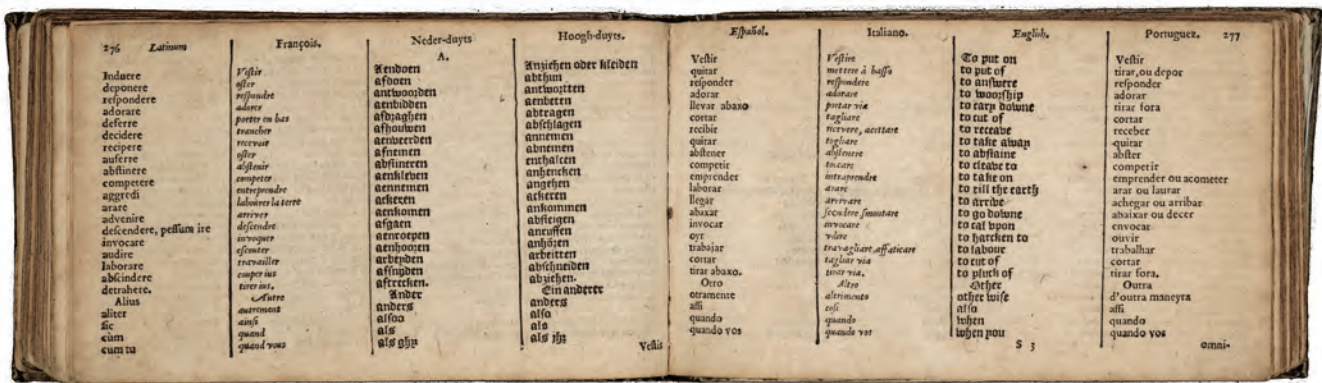 276 Latinum
Induere
deponere
reſpondere
adorare
deferre
decidere
recipere
auferre
abſtinere
competere
aggredi
arare
advenire
deſcendere, peſſum ire
invocare
audire
laborare
abſcindere
detrahere.
Alius
aliter
ſic
cùm
cum tu
François.
Veſtir
oſter
reſpondre
adorer
porter en bas
trancher
recevoir
oſter
abſtenir
competer
entreprendre
labourer la terre
arriver
deſcendre
invoquer
eſcouter
travailler
couper ius
tirer ius.
Autre
autrement
ainſi
quand
quand vous
Neder-duyts
A.
Aendoen
afdoen
antwoorden
aenbidden
afdraghen
afhouwen
aenveerden
afnemen
abſtineren
aenkleven
aennemen
ackeren
aenkomen
afgaen
aenroepen
aenhooren
arbeyden
afſnyden
aftrecken.
Ander
anders
alſoo
als
als ghy
Hoogh-duyts.
Anziehen oder kleiden
abthun
antwortten
aenbetten
abtragen
abſchlagen
annemen
abnemen
enthalten
anhencken
angehen
ackeren
ankommen
abſteigen
anruffen
anhören
arbeitten
abſchneiden
abziehen.
Ein anderer
anders
alſo
als
als jhr
Veſtis
Eſpañol.
Veſtir
quitar
reſponder
adorar
llevar abaxo
cortar
recibir
quitar
abſtener
competir
emprender
laborar
llegar
abaxar
invocar
oyr
trabajar
cortar
tirar abaxo.
Otro
otramente
aſſi
quando
quando vos
Italiano.
Veſtire
mettere à baſſo
reſpondere
adorare
portar via
tagliare
ricevere, accittare
togliare
abſtenere
toccare
intraprendre
arare
arrivare
ſcendere ſmontare
invocare
vdire
travagliare, affaticare
tagliar via
tirar via.
Altro
altrimento
coſi
quando
quando voi
Engliſh.
To put on
to put of
to anſwere
to woorſhip
to cary downe
to cut of
to receave
to take away
to abſtaine
to cleave to
to take on
to till the earth
to arrive
to go downe
to cal vpon
to harcken to
to labour
to cut of
to pluck of
Other
other wiſe
alſo
when
when you
S 3
Portuguez. 277
Veſtir
tirar, ou depor
reſponder
adorar
tirar fora
cortar
receber
quitar
abſter
competir
emprender ou acometer
arar ou laurar
achegar ou arribar
abaixar ou decer
envocar
ouvir
trabalhar
cortar
tirar fora.
Outra
d'outra maneyra
aſſi
quando
quando vos
omni-